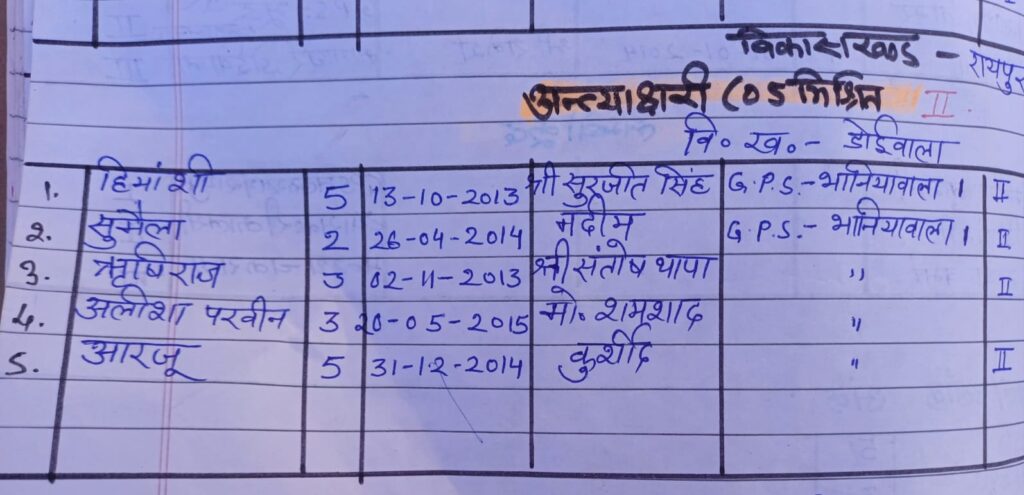 विकासखण्ड - रायपुर
अन्त्याक्षरी (05 मिश्रित II
वि० ख०- डोईवाला
1. हिमांशी 5 13-10-2013 श्री सुरजीत सिंह G.P.S.- भानियावाला । II
2. सुमैला 2 26-04-2014 नदीम G.P.S.- भानियावाला । II
3. ऋषिराज 5 02-11-2013 श्री संतोष थापा ,, II
4. अलीशा परवीन 3 20-05-2015 मो. शमशाद "
5. आरजू 5 31-12-2014 कुर्शीद " II